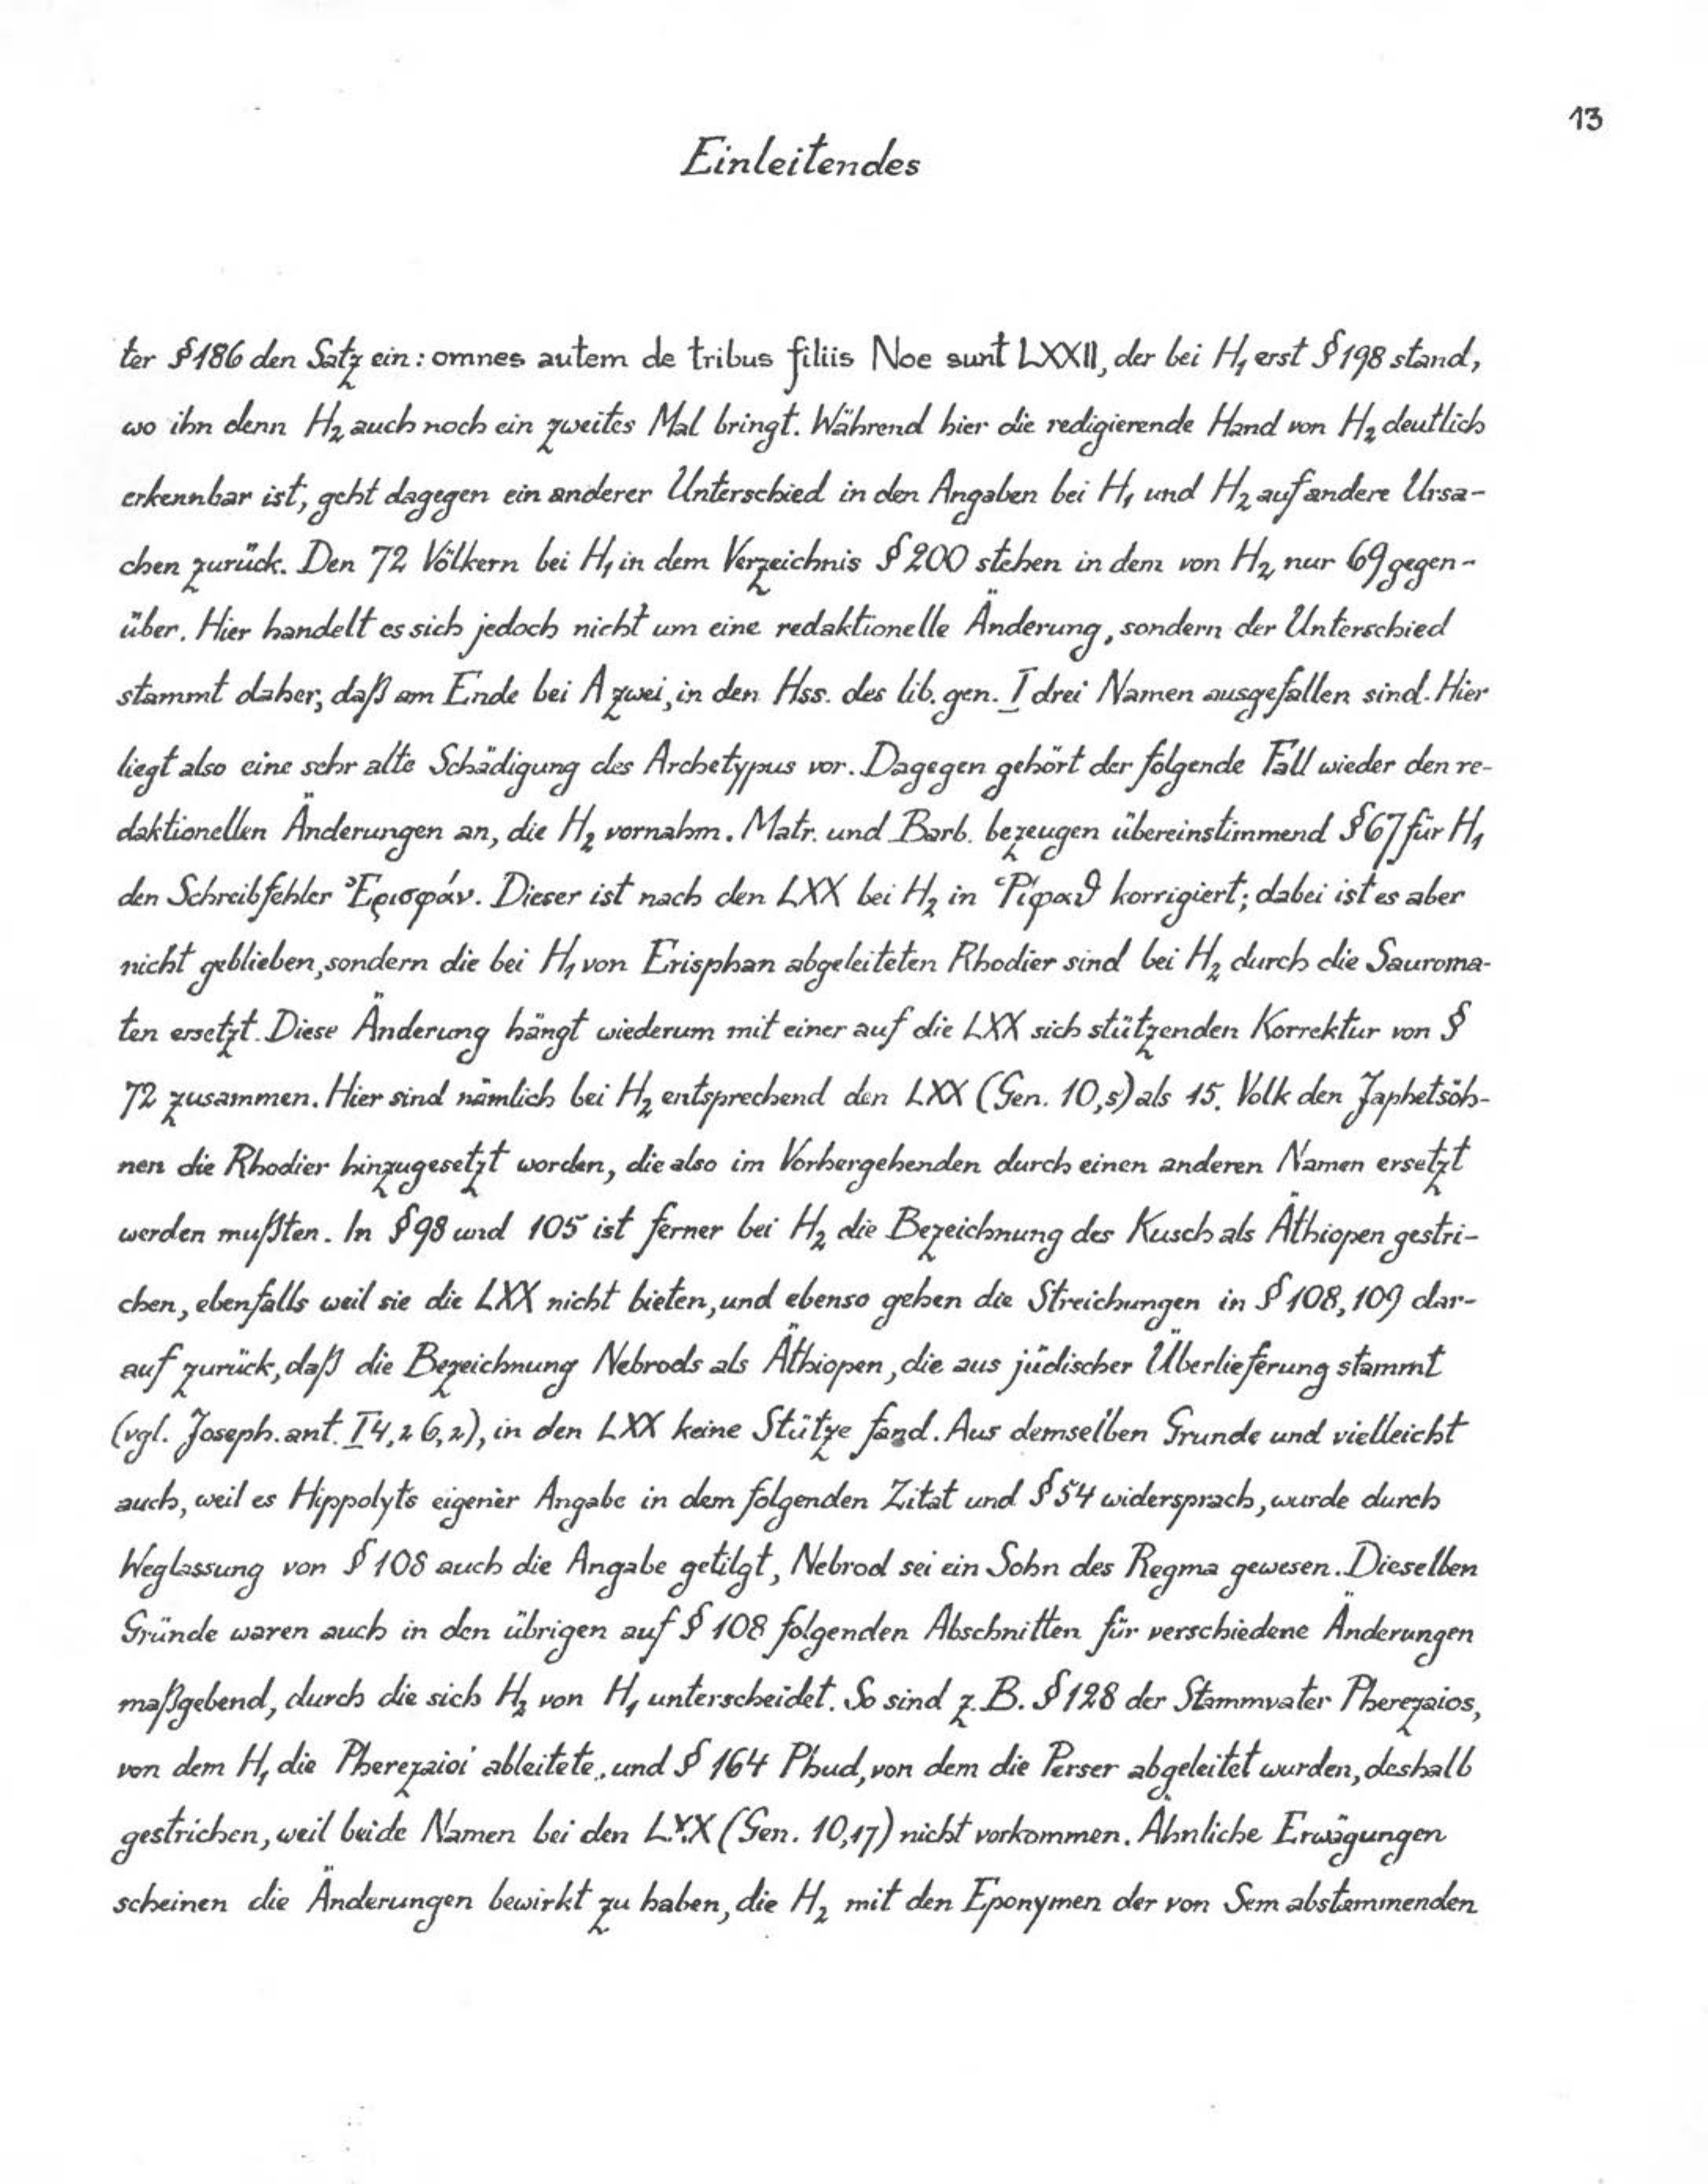 13
Einleitendes
ter § 186 den Satz ein: omnes autem de tribus filiis Noe sunt LXXII, der bei H₁ erst § 198 stand,
wo ihn denn H₂ auch noch ein zweites Mal bringt. Während hier die redigierende Hand von H₂ deutlich
erkennbar ist, geht dagegen ein anderer Unterschied in den Angaben bei H₁ und H₂ auf andere Ursa-
chen zurück. Den 72 Völkern bei H₁ in dem Verzeichnis § 200 stehen in dem von H₂ nur 69 gegen-
über. Hier handelt es sich jedoch nicht um eine redaktionelle Änderung, sondern der Unterschied
stammt daher, daß am Ende bei A zwei, in den Hss. des lib. gen. I drei Namen ausgefallen sind. Hier
liegt also eine sehr alte Schädigung des Archetypus vor. Dagegen gehört der folgende Fall wieder den re-
daktionellen Änderungen an, die H₂ vornahm. Matr. und Barb. bezeugen übereinstimmend § 67 für H₁
den Schreibfehler Ἐρισφάν. Dieser ist nach den LXX bei H₂ in Ῥίφαϑ korrigiert; dabei ist es aber
nicht geblieben, sondern die bei H₁ von Erisphan abgeleiteten Rhodier sind bei H₂ durch die Sauroma-
ten ersetzt. Diese Änderung hängt wiederum mit einer auf die LXX sich stützenden Korrektur von §
72 zusammen. Hier sind nämlich bei H₂ entsprechend den LXX (Gen. 10,5) als 15. Volk den Japhetsöh-
nen die Rhodier hinzugesetzt worden, die also im Vorhergehenden durch einen anderen Namen ersetzt
werden mußten. In § 98 und 105 ist ferner bei H₂ die Bezeichnung des Kusch als Äthiopen gestri-
chen, ebenfalls weil sie die LXX nicht bieten, und ebenso gehen die Streichungen in § 108, 109 dar-
auf zurück, daß die Bezeichnung Nebrods als Äthiopen, die aus jüdischer Überlieferung stammt
(vgl. Joseph. ant. I 4,2 6,2), in den LXX keine Stütze fand. Aus demselben Grunde und vielleicht
auch, weil es Hippolyts eigener Angabe in dem folgenden Zitat und § 54 widersprach, wurde durch
Weglassung von § 108 auch die Angabe getilgt, Nebrod sei ein Sohn des Regma gewesen. Dieselben
Gründe waren auch in den übrigen auf § 108 folgenden Abschnitten für verschiedene Änderungen
maßgebend, durch die sich H₂ von H₁ unterscheidet. So sind z. B. § 128 der Stammvater Pherezaios,
von dem H₁ die Pherezaioi ableitete, und § 164 Phud, von dem die Perser abgeleitet wurden, deshalb
gestrichen, weil beide Namen bei den LXX (Gen. 10,17) nicht vorkommen. Ähnliche Erwägungen
scheinen die Änderungen bewirkt zu haben, die H₂ mit den Eponymen der von Sem abstammenden